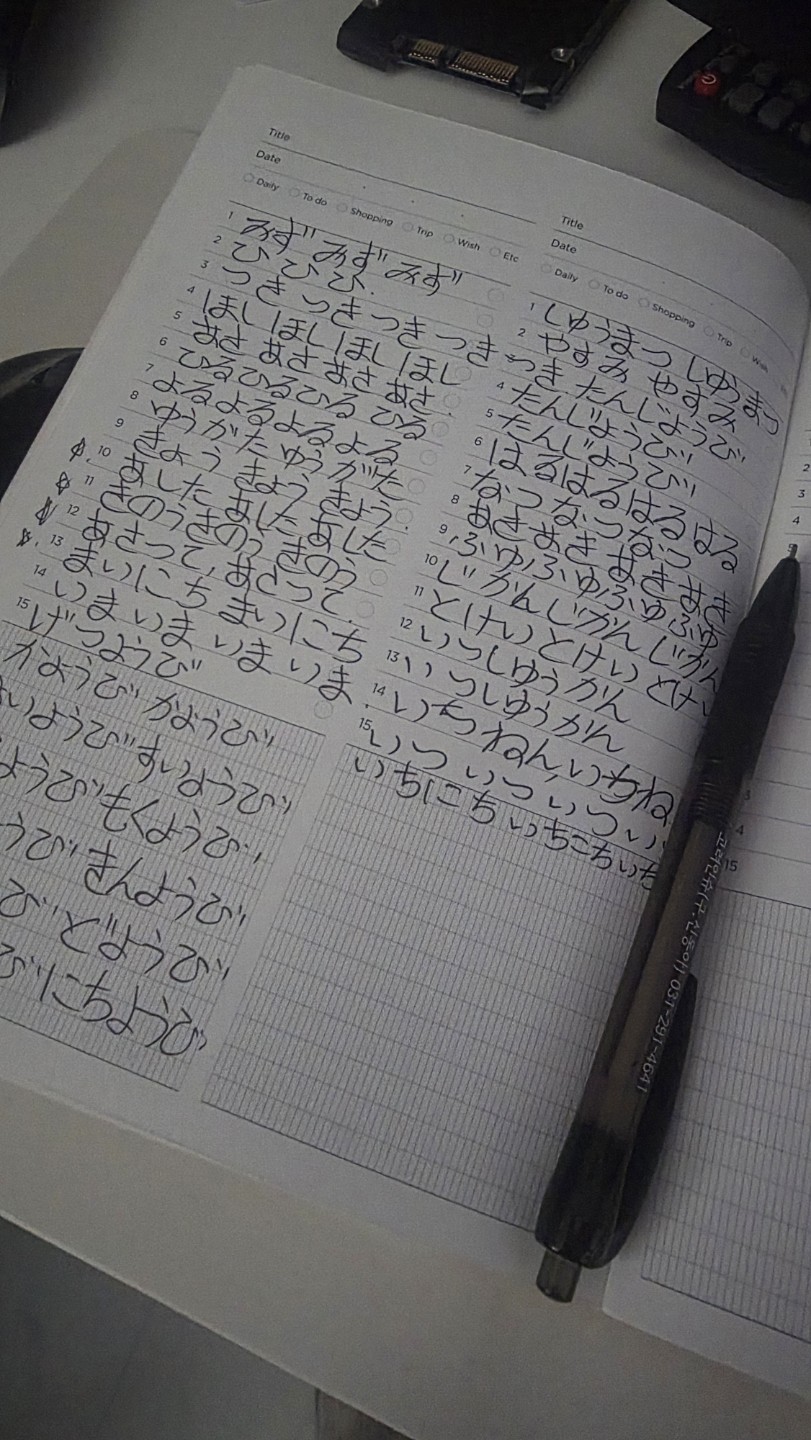 Title
Date
Daily To do Shopping Trip Wish Etc
1 みず みず みず
2 ひ ひ ひ.
3 つき つき つき つき つき
4 ほし ほし ほし ほし
5 あさ あさ あさ あさ.
6 ひる ひる ひる ひる
7 よる よる よる よる
8 ゆうがた ゆうがた
9 きょう きょう きょう.
10 あした あした あした
11 きのう きのう きのう
12 あさって, あさって.
13 まいにち まいにち
14 いま いま いま いま.
15 げつようび
かようび かようび
ようび すいようび
ようび もくようび
うび きんようび
び どようび
び にちようび
Title
Date
Daily To do Shopping Trip Wish
1 しゅうまつ しゅうまつ
2 やすみ やすみ
たんじょうび
4 たんじょうび
5 たんじょうび
6 はる はる はる はる
7 なつ なつ なつ
8 あき あき あき あき
9 ふゆ ふゆ ふゆ ふゆ
10 じかん じかん じかん
11 とけい とけい とけい
12 いっしゅうかん
13 いっしゅうかん
14 いちねん, いちね
15 いつ いつ いつ い
いちにち いちにち いち
2
3
4
3
4
15
고려인쇄(구.신동아) 031-291-4641